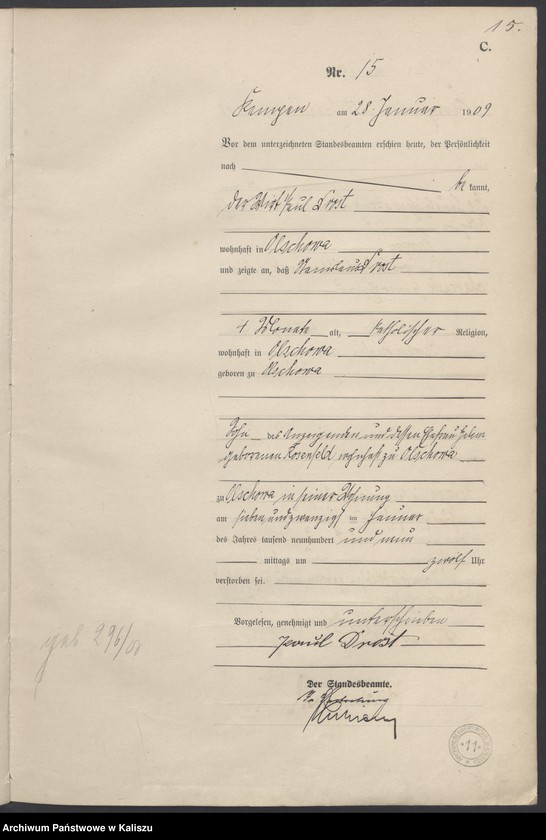 15.
C.
Nr. 15
Kempen am 28 Januar 1909
Vor dem unterzeichneten Standesbeamten erschien heute, der Persönlichkeit
nach
be kannt,
der Wirt Paul Drost
wohnhaft in Olschowa
und zeigte an, daß Drost
4 Monate alt, katholischer Religion,
wohnhaft in Olschowa
geboren zu Olschowa
Sohn des Anzeigenden und dessen Ehefrau
geborenen Rosenfeld wohnhaft zu Olschowa
zu Olschowa in seiner Wohnung
am siebenundzwanzigsten Januar
des Jahres tausend neunhundert und neun
mittags um zwölf Uhr
verstorben sei.
Vorgelesen, genehmigt und unterschrieben
Paul Drost
Der Standesbeamte.
In Vertretung
geb 296/08
11
Archiwum Państwowe w Kaliszu